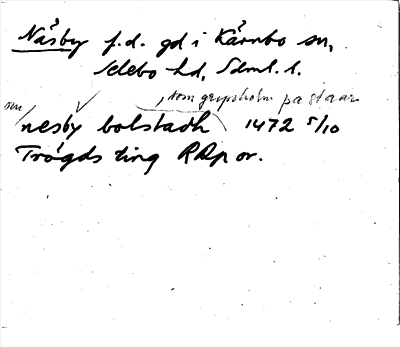 Näsby f.d. gd i Kärnbo sn,
Selebo hd, Sdml. l.
som gripsholm pa staar
nesby bolstadh 1472 5/10
Trögds ting RAp or.